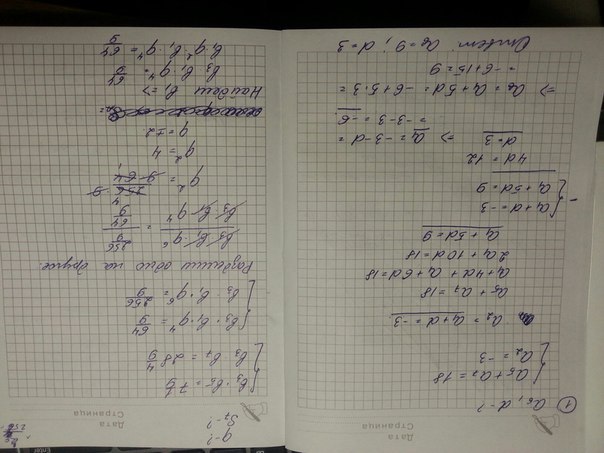 Дата
Страница
① a₆, d - ?
{ a₅ + a₇ = 18
a₂ = -3
a₂ = a₁ + d = -3
a₅ + a₇ = 18
a₁ + 4d + a₁ + 6d = 18
2a₁ + 10d = 18
a₁ + 5d = 9
- { a₁ + d = -3
a₁ + 5d = 9
4d = 12
d = 3 ⇒ a₁ = -3 - d =
= -3 - 3 = -6
⇒ a₆ = a₁ + 5d = -6 + 5·3 =
= -6 + 15 = 9
Ответ: a₆ = 9; d = 3
Дата
Страница
q - ?
S₇ - ?
{ b₃ · b₅ = 7 1/9
b₃ · b₇ = 28 4/9
{ b₃ · b₁ · q⁴ = 64/9
b₃ · b₁ · q⁶ = 256/9
Разделим одно на другое
b₃ · b₁ · q⁶ / b₃ · b₁ · q⁴ = 256/9 / 64/9
q² = 256 · 9 / 9 · 64
q² = 4
q = ±2
Найдем b₁ ⇒
b₃ · b₁ · q⁴ = 64/9
b₁ · q² · b₁ · q⁴ = 64/9